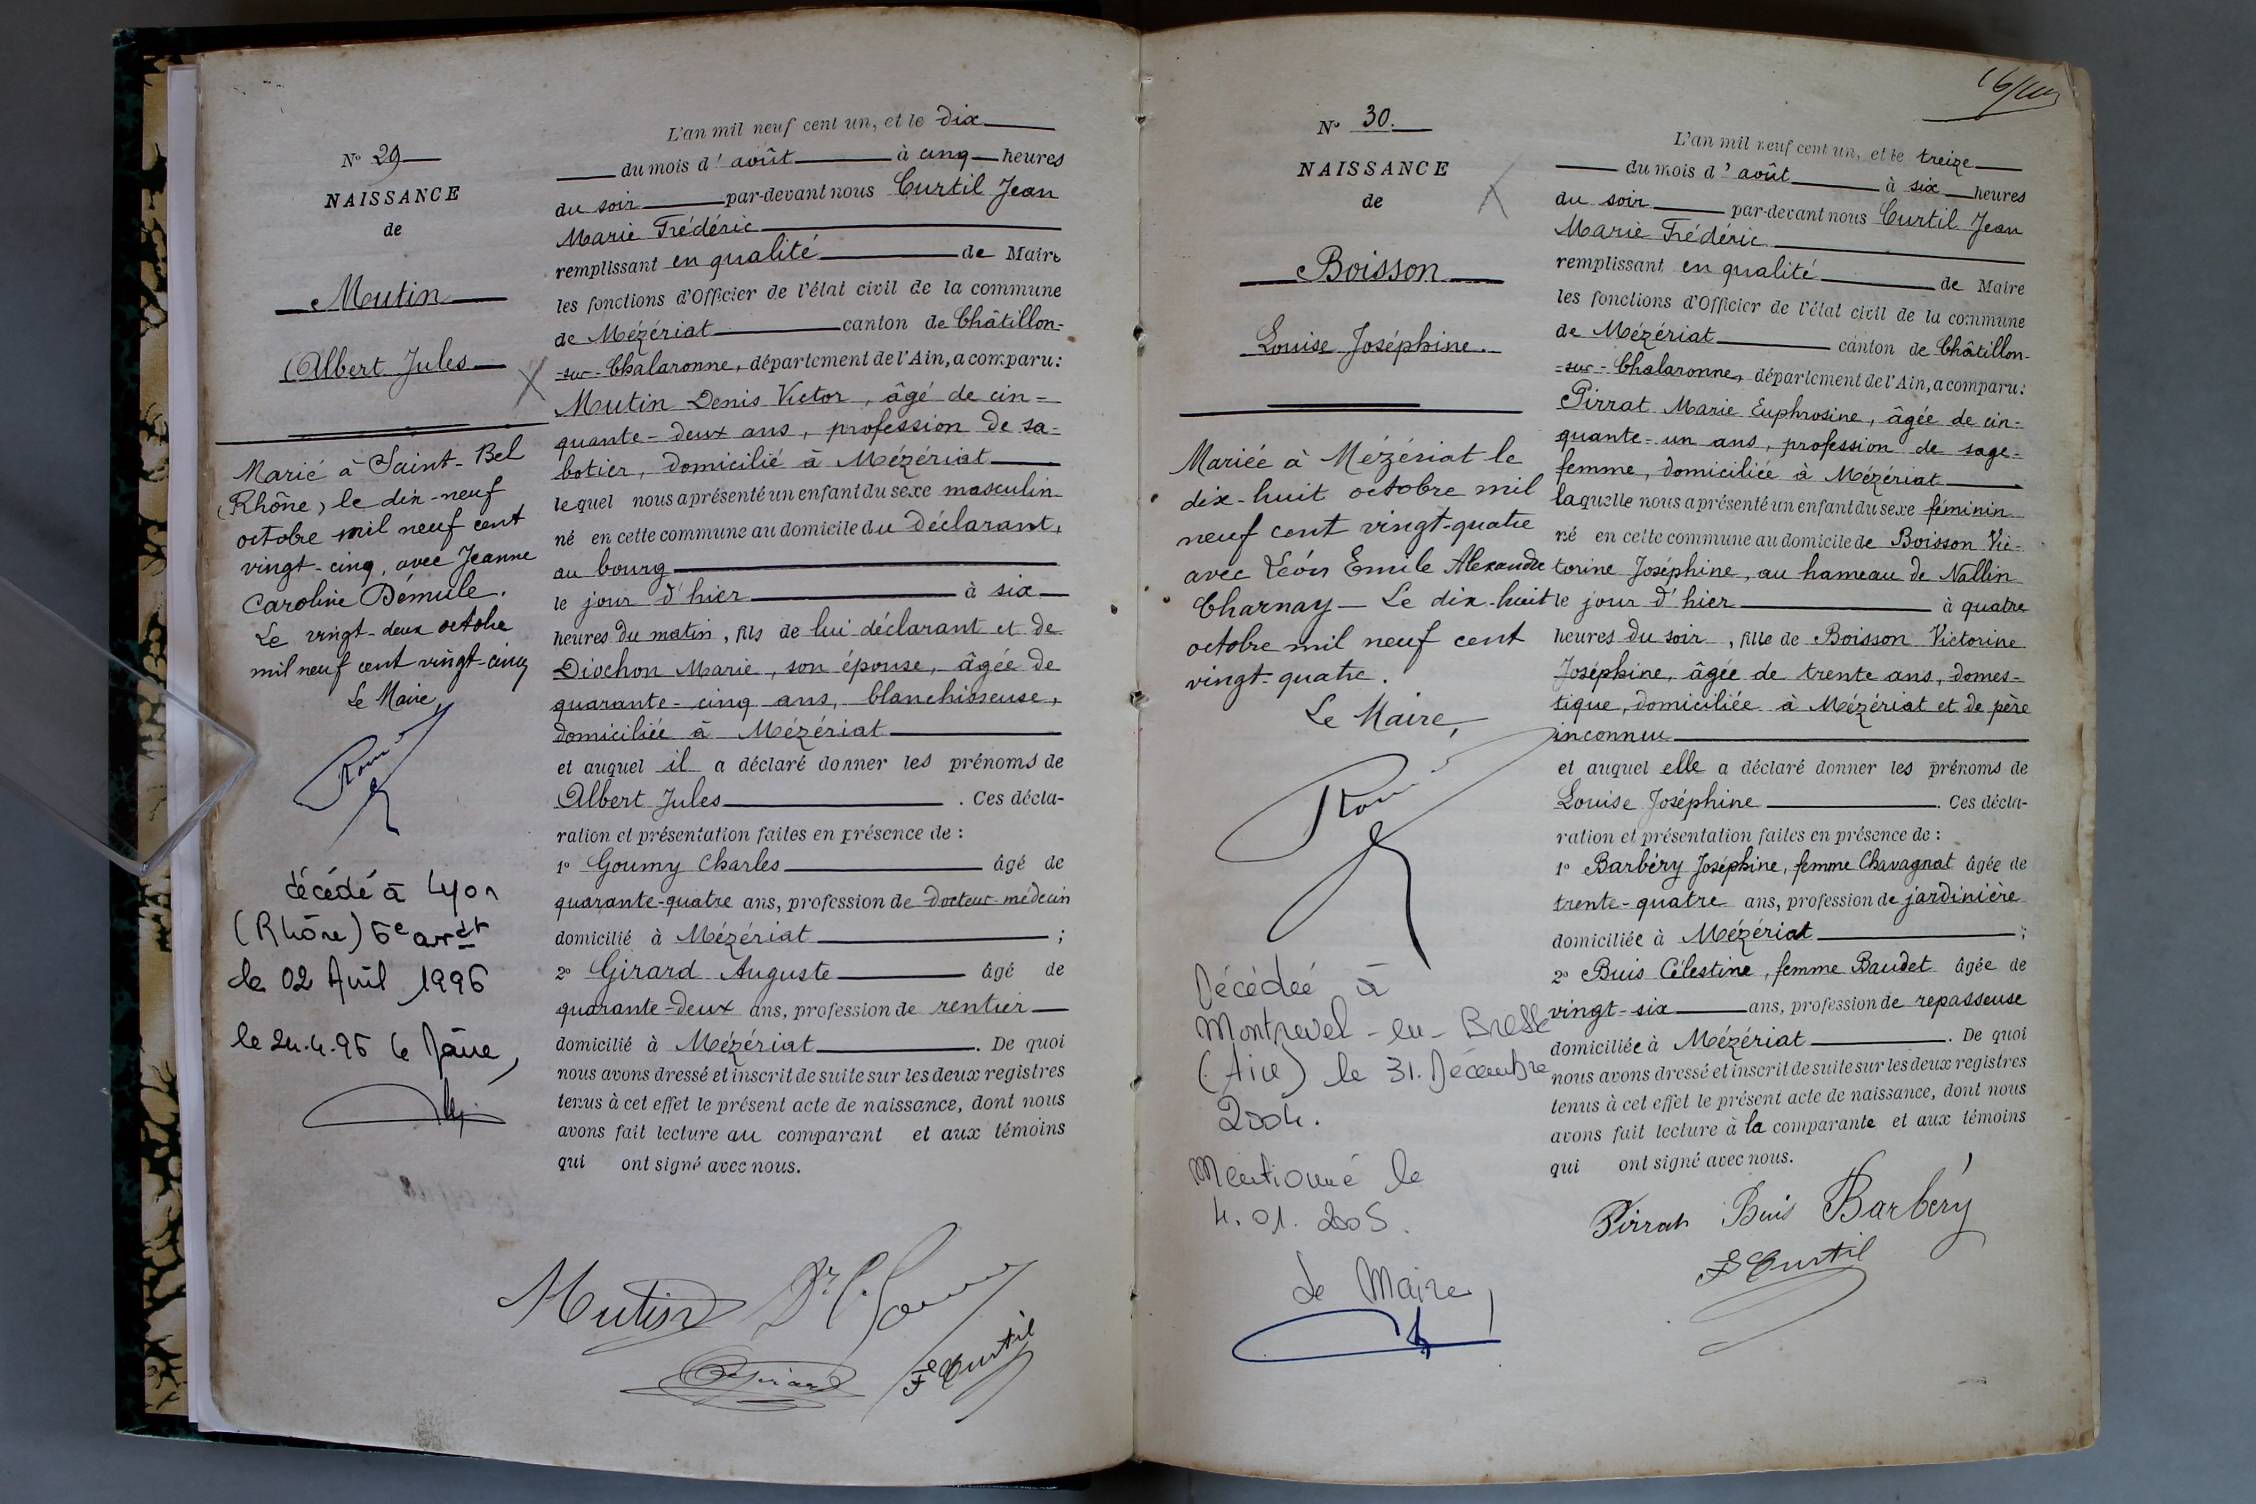 N° 29
NAISSANCE
de
Mutin
Albert Jules
Marié à Saint-Bel
(Rhône), le dix-neuf
octobre mil neuf cent
vingt-cinq, avec Jeanne
Caroline Démule.
Le vingt-deux octobre
mil neuf cent vingt-cinq
Le Maire,
décédé à Lyon
(Rhône) 6e arrdt
le 02 Avril 1996
le 24.4.96 le Maire,
L'an mil neuf cent un, et le dix
du mois d'août à cinq heures
du soir par-devant nous Curtil Jean
Marie Frédéric
remplissant en qualité de Maire
les fonctions d'Officier de l'état civil de la commune
de Mézériat canton de Châtillon-
-sur-Chalaronne, département de l'Ain, a comparu:
Mutin Denis Victor, âgé de cin=
quante-deux ans, profession de sa=
botier, domicilié à Mézériat
lequel nous a présenté un enfant du sexe masculin
né en cette commune au domicile du déclarant,
au bourg
le jour d'hier à six
heures du matin, fils de lui déclarant et de
Diochon Marie, son épouse, âgée de
quarante-cinq ans, blanchisseuse,
domiciliée à Mézériat
et auquel il a déclaré donner les prénoms de
Albert Jules . Ces décla-
ration et présentation faites en présence de :
1° Goumy Charles âgé de
quarante-quatre ans, profession de docteur-médecin
domicilié à Mézériat ;
2° Girard Auguste âgé de
quarante-deux ans, profession de rentier
domicilié à Mézériat . De quoi
nous avons dressé et inscrit de suite sur les deux registres
tenus à cet effet le présent acte de naissance, dont nous
avons fait lecture au comparant et aux témoins
qui ont signé avec nous.
Mutin Dr C. Goumy
Girard F Curtil
N° 30.
NAISSANCE
de
Boisson
Louise Joséphine.
Mariée à Mézériat le
dix-huit octobre mil
neuf cent vingt-quatre
avec Léon Emile Alexandre
Charnay — Le dix-huit
octobre mil neuf cent
vingt-quatre.
Le Maire,
Décédée à
Montrevel-en-Bresse
(Ain) le 31. Décembre
2004.
Mentionné le
4.01.2005.
Le Maire,
L'an mil neuf cent un, et le treize
du mois d'août à six heures
du soir par-devant nous Curtil Jean
Marie Frédéric
remplissant en qualité de Maire
les fonctions d'Officier de l'état civil de la commune
de Mézériat canton de Châtillon-
-sur-Chalaronne, département de l'Ain, a comparu:
Pirrat Marie Euphrosine, âgée de cin=
quante-un ans, profession de sage=
femme, domiciliée à Mézériat
laquelle nous a présenté un enfant du sexe féminin
né en cette commune au domicile de Boisson Vic=
torine Joséphine, au hameau de Nallin
le jour d'hier à quatre
heures du soir, fille de Boisson Victorine
Joséphine, âgée de trente ans, domes-
tique, domiciliée à Mézériat et de père
inconnu
et auquel elle a déclaré donner les prénoms de
Louise Joséphine . Ces décla-
ration et présentation faites en présence de :
1° Barbéry Joséphine, femme Chavagnat âgée de
trente-quatre ans, profession de jardinière
domiciliée à Mézériat ;
2° Buis Célestine, femme Baudet âgée de
vingt-six ans, profession de repasseuse
domiciliée à Mézériat . De quoi
nous avons dressé et inscrit de suite sur les deux registres
tenus à cet effet le présent acte de naissance, dont nous
avons fait lecture à la comparante et aux témoins
qui ont signé avec nous.
Pirrat Buis Barbéry
F Curtil